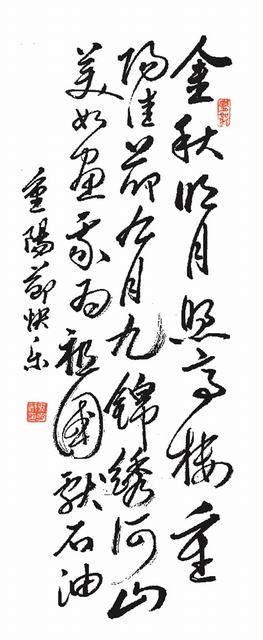 金秋明月照高楼重
阳佳节今月九锦绣河山
美如画我为祖国献石油
重陽節快乐